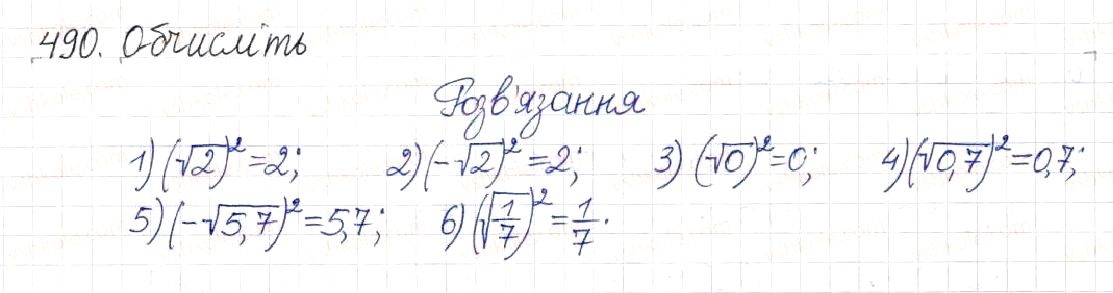 490. Обчисліть
Розв'язання
1) (√2)² = 2; 2) (-√2)² = 2; 3) (√0)² = 0; 4) (√0,7)² = 0,7;
5) (-√5,7)² = 5,7; 6) (√(1/7))² = 1/7.